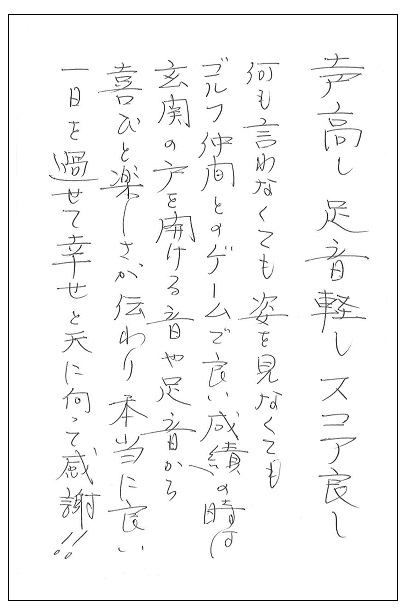 声高し 足音軽し スコア良し
何も言わなくても姿を見なくても
ゴルフ仲間とのゲームで良い成績の時は
玄関の戸を開ける音や足音から
喜びと楽しさが伝わり本当に良い
一日を過せて幸せと天に向って感謝!!